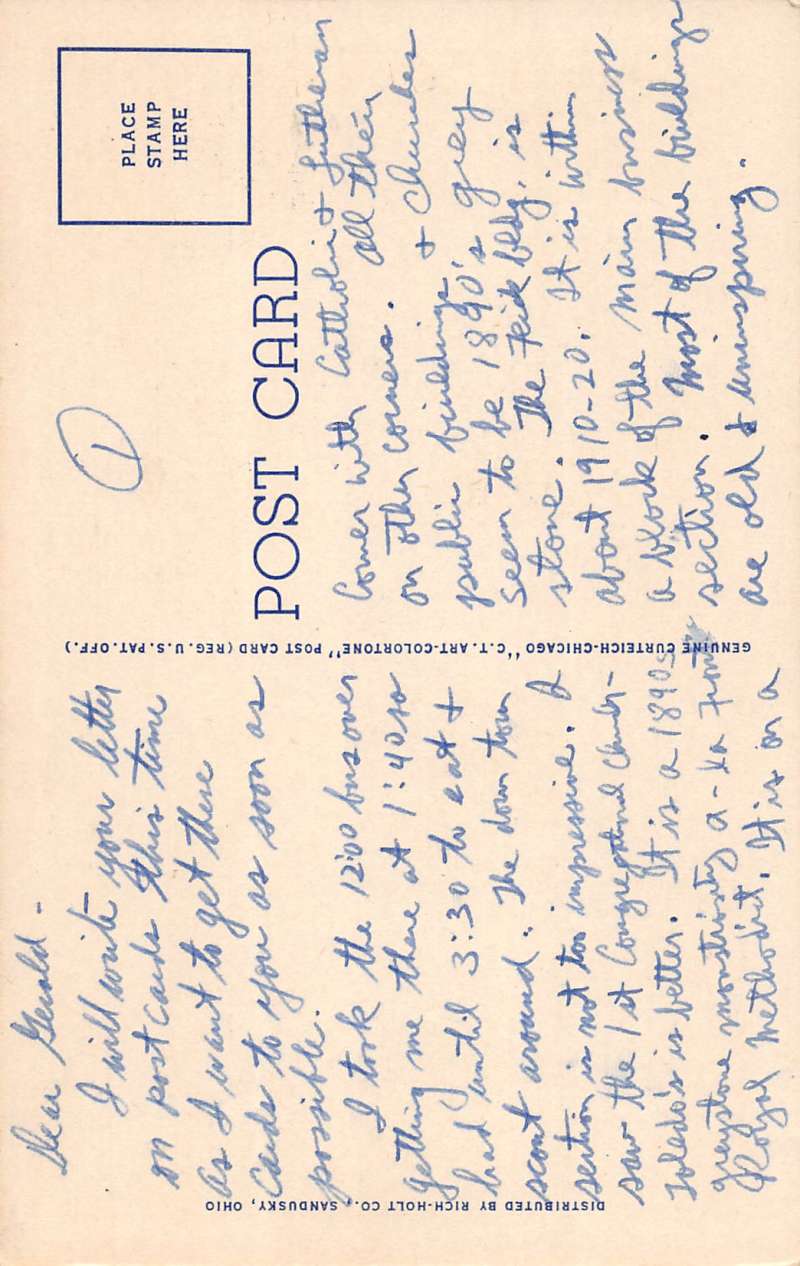 Dear Gerald -
I will write your letter
on post cards this time
as I want to get these
cards to you as soon as
possible.
I took the 12:00 bus over
getting me there at 1:40 so
had until 3:30 to eat &
scout around. The down town
section is not too impressive. I
saw the 1st Congregational church -
Toledo's is better. It is a 1890s
greystone monstrosity a-la Front
Royal Methodist. It is on a
DISTRIBUTED BY RICH-HOLT CO., SANDUSKY, OHIO
GENUINE CURTEICH-CHICAGO "C.T. ART-COLORTONE" POST CARD (REG. U.S. PAT. OFF.)
1
PLACE
STAMP
HERE
POST CARD
Corner with Catholic & Lutheran
on other corners. All their
public buildings & churches
seem to be 1890's grey
stone. The bldg. is
about 1910-20. It is within
a block of the main business
section. Most of the buildings
are old & uninspiring.